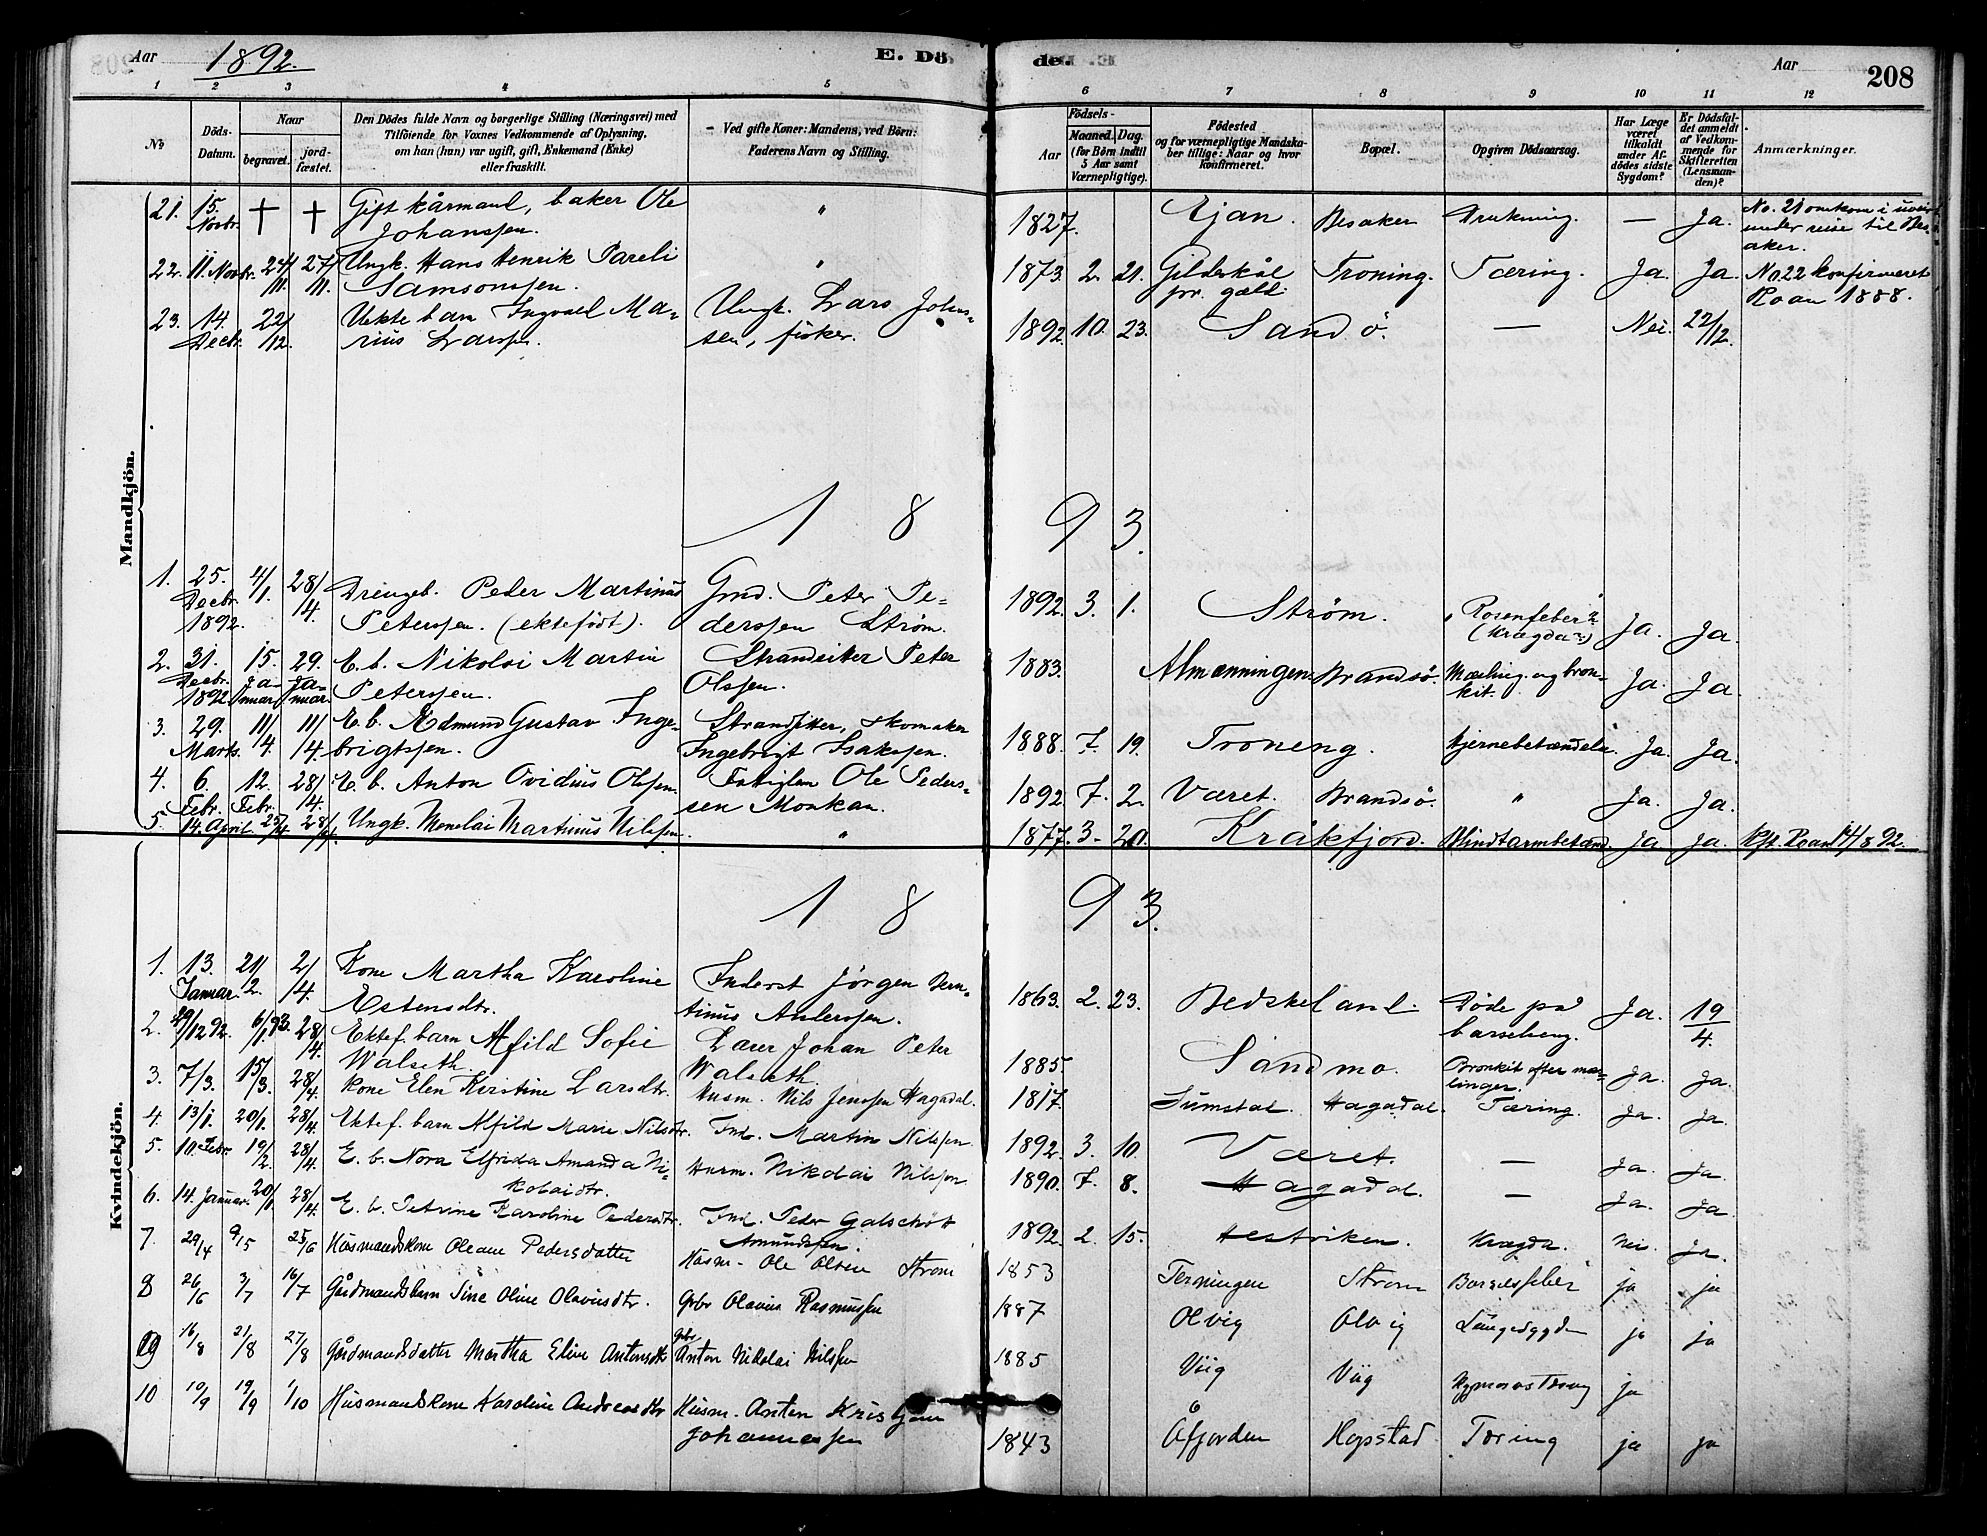 Aar 1892. E. Dö de. Aar 208
1 2 3 4 5 6 7 8 9 10 11 12
No Döds-Datum. Naar begravet. jordfæstet. Den Dödes fulde Navn og borgerlige Stilling (Næringsvei) med Tilföiende for Voxnes Vedkommende af Oplysning, om han (hun) var ugift, gift, Enkemand (Enke) eller fraskilt. Ved gifte Koner: Mandens, ved Börn: Faderens Navn og Stilling. Födsels- Aar Maaned. Dag. (for Börn indtil 5 Aar samt Værnepligtige). Födested og for værnepligtige Mandskaber tillige: Naar og hvor konfirmeret. Bopæl. Opgiven Dödsaarsag. Har Læge været tilkaldt under Afdödes sidste Sygdom? Er Dödsfaldet anmeldt af Vedkommende for Skifteretten (Lensmanden)? Anmærkninger.
Mandkjön.
21. 15. Novbr. † † Gift kårmand, baker Ole Johanssen. " 1827. Besaker Drukning. — Ja. No. 21 omkom i uveir under reise til Besaker.
22. 11. Novbr. 24/11. 27/11. Ungk. Hans Henrik Pareli Samsonssen. " 1873. 2. 21. Gilderskål pr. gæld Troning. Tæring. Ja. Ja. No 22 konfirmeret Roan 1888.
23. 14. Decbr. 22/12. Uekte barn Ingvald Marius Larssen. Ungk. Lars Johnssen, fisker. 1892. 10. 23. Sandö. — Nei. 22/12.
1893.
1. 25. Decbr. 1892. 4/1. 28/4. Drengeb. Peder Martinus Peterssen. (ektefødt). Gmd. Peter Pederssen Strøm. 1892. 3. 1. Strøm. "Rosenfeber" (Krægda?) Ja. Ja.
2. 31. Decbr. 1892. 15. Januar. 29. Januar. E. b. Nikolai Martin Peterssen. Strandsitter Peter Olssen. 1883. Almenningen. Brandsö. Mæsling. og bronkit. Ja. Ja.
3. 29. Marts. 11/4. 11/4. E. b. Edmund Gustav Ingebrigtssen. Strandsitter, skomaker Ingebrigt Isakssen. 1888. 7. 19. Troneng. Hjernebetændelse. Ja. Ja.
4. 6. Febr. 12. Febr. 28/4. E. b. Anton Ovidius Olssen. Fattiglem Ole Pederssen Monkan. 1892. 7. 2. Været. Brandsö. " Ja. Ja.
5. 14. April. 25/4. 28/4. Ungk. Menelai Martinus Nilssen. " 1877. 3. 20. Kråkfjord. Blindtarmbetænd. Ja Ja. Kft. Roan 14/8 92.
Kvindekjön.
1893.
1. 13. Januar. 21/2. 2/4. Kone Martha Karoline Estensdtr. Inderst Jørgen Berntinus Anderssen. 1863. 2. 23. Beskeland. Døde på barselseng. Ja. 19/4.
2. 29/12 92. 6/1 93. 28/4. Ektef. barn Alfild Sofie Walseth. Lærer Johan Peter Walseth. 1885. Sandmo. Bronkit efter mæslinger. Ja. Ja.
3. 7/3. 15/3. 28/4. Kone Elen Kirstine Larsdtr. Husm. Nils Jenssen Hagadal. 1817. Sumstad. Hagadal. Tæring. Ja. Ja.
4. 13/1. 20/1. 28/4. Ektef. barn Alfild Marie Nilsdtr. Ind. Martin Nilssen. 1892. 3. 10. Været. — Ja. Ja.
5. 10. Febr. 19/2. 28/4. E. b. Nora Elfrida Amanda Nikolaidtr. Husm. Nikolai Nilssen 1890. 7. 8. Hagadal. — Ja. Ja.
6. 14. Januar. 20/1. 28/4. E. b. Petrine Karoline Pedersdtr. Ind. Peder Galschöt Amundssen. 1892. 2. 15. Hestviken. Krægda. Nei. Ja.
7. 29/4 9/5 25/6 Husmandskone Oleane Pedersdatter Husm. Ole Olsen Strøm 1853 Terningen Strøm Barselsfeber ja ja
8 26/6 3/7 16/7 Gårdmandsbarn Sine Oline Olavusdtr. Gbr Olavus Rasmussen 1887 Olvig Olvig Lungesygdom ja ja
9 16/8 21/8 27/8 Gårdmandsdatter Martha Eline Antonsdtr Gbr Anton Nikolai Nilssen 1885 Viig Viig ja
10 10/9 19/9 1/10 Husmandskone Karoline Andreasdtr Husm. Anton Kristian Johannessen 1843 Åfjorden Hopstad Tæring ja ja